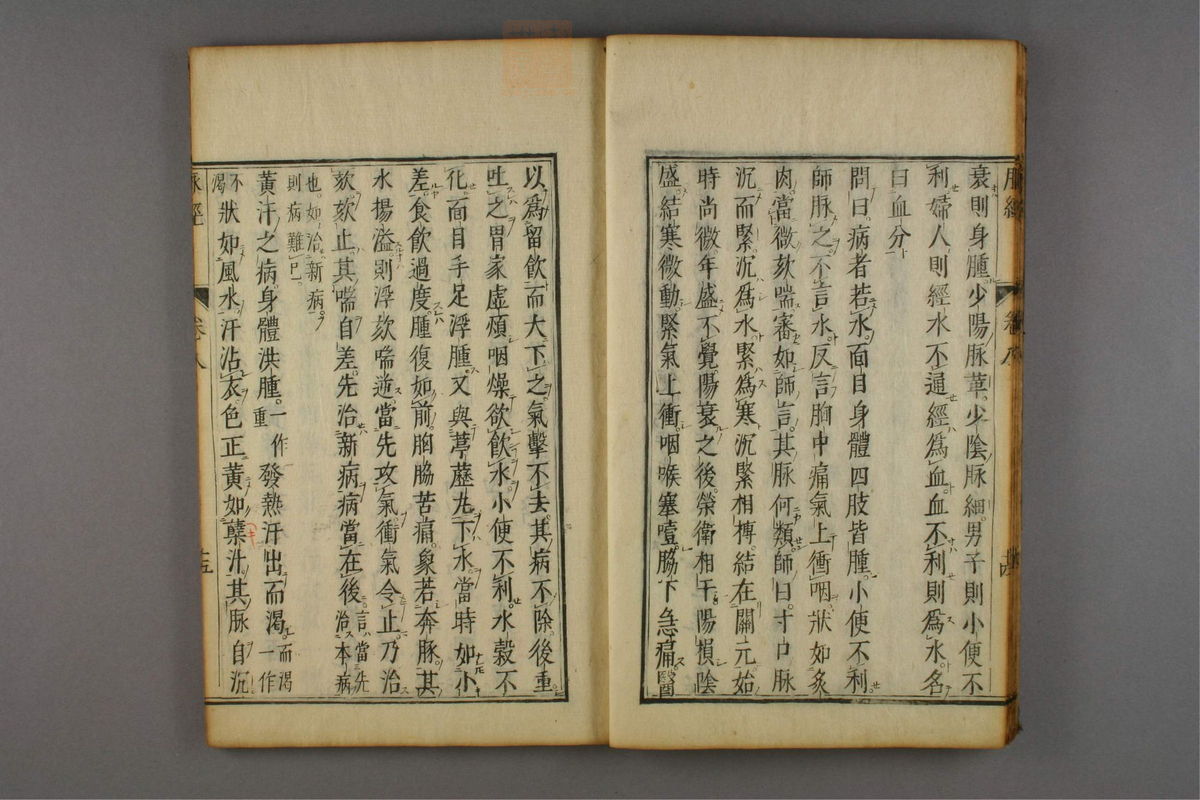 脉經　卷八　十四
衰則身腫少陽脉革少陰脉細男子則小便不
利婦人則經水不通經爲血血不利則爲水名
曰血分
問曰病者若水面目身體四肢皆腫小便不利
師脉之不言水反言胸中痛氣上衝咽狀如炙
肉當微欬喘審如師言其脉何類師曰寸口脉
沉而緊沉爲水緊爲寒沉緊相摶結在關元始
時尚微年盛不覺陽衰之後榮衛相干陽損陰
盛結寒微動緊氣上衝咽喉塞噎脇下急痛醫
以爲留飲而大下之氣擊不去其病不除後重
吐之胃家虛煩咽燥欲飲水小便不利水穀不
化面目手足浮腫又與葶藶丸下水當時如小
差食飲過度腫復如前胸脇苦痛象若奔豚其
水揚溢則浮欬喘逆當先攻氣衝氣令止乃治
欬欬止其喘自差先治新病病當在後言當先治本病
也如治新病則病難已
黃汗之病身體洪腫一作重發熱汗出而渴而渴一作
不渴狀如風水汗沾衣色正黃如蘗汁其脉自沉
脉經　卷八　十五